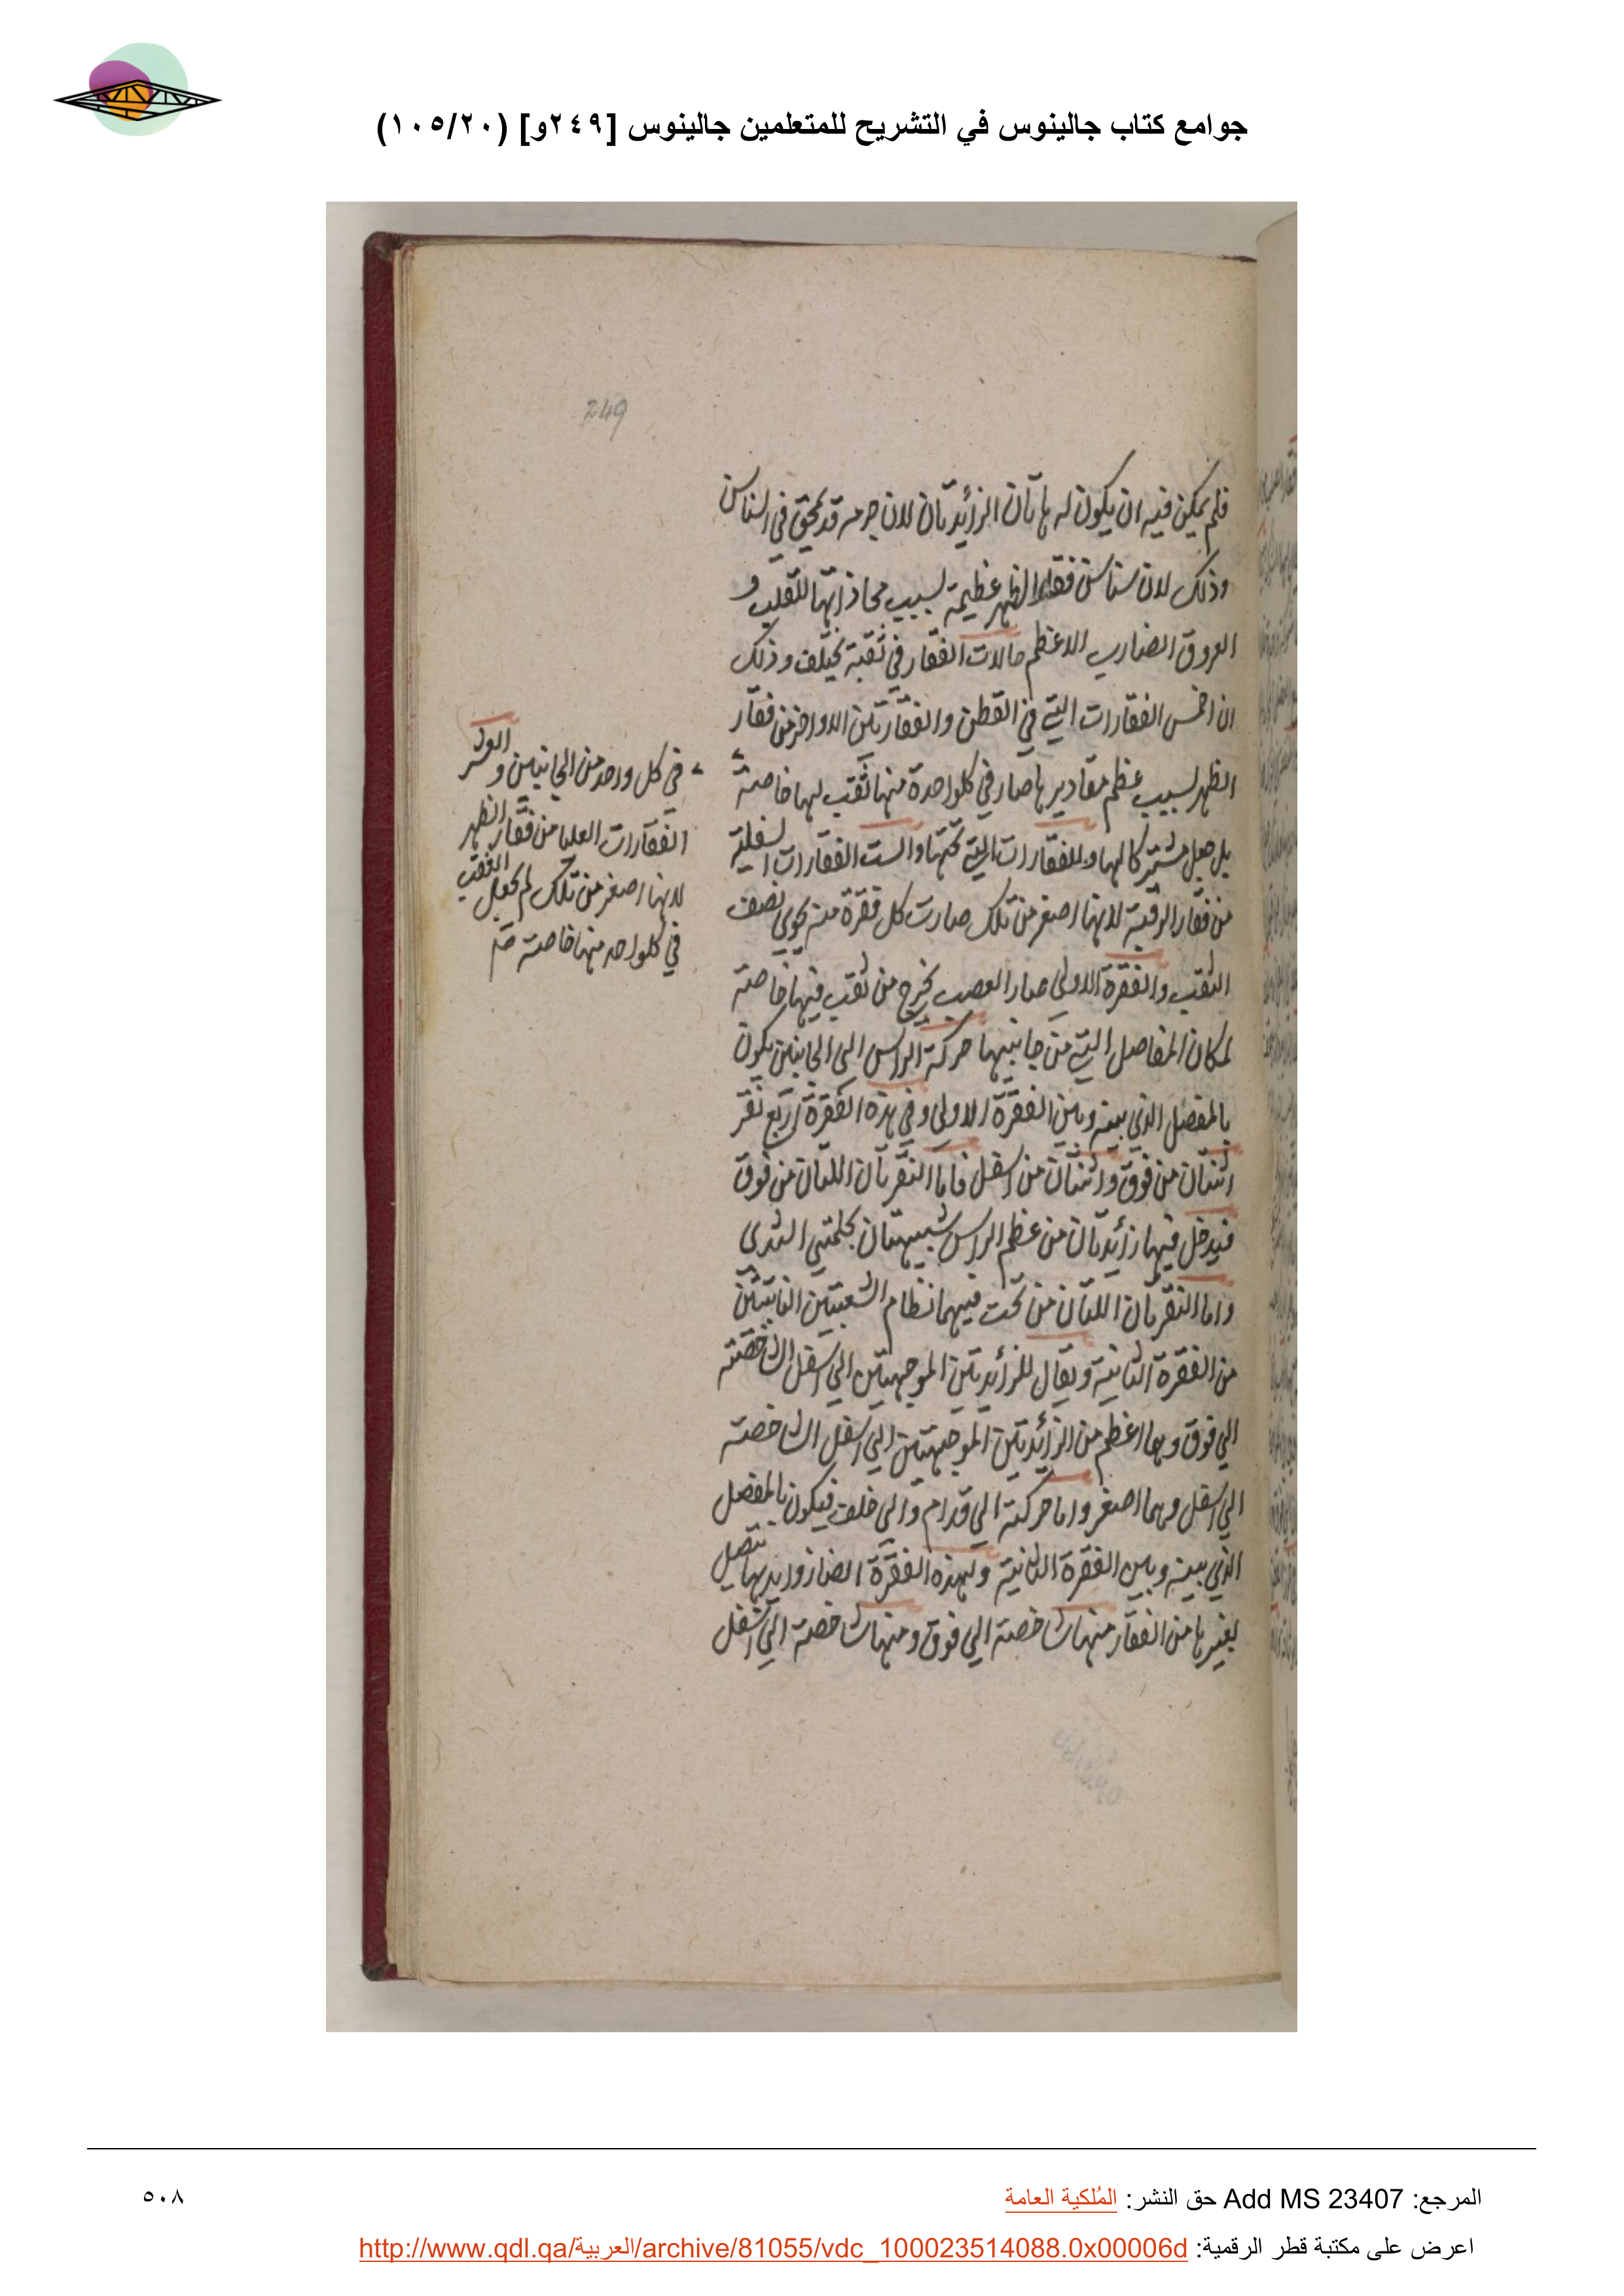 جوامع كتاب جالينوس في التشريح للمتعلمين جالينوس [٢٤٩و] (١٠٥/٢٠)
249
فلم يمكن فيه ان يكون له هاتان الزائدتان لان جرمه قد يمحق في السناسن
وذلك لان سناسن فقار الظهر عظيمة لسبب محاذاتها للقلب و
العروق الضارب الاعظم حالات الفقار في ثقبة تختلف وذلك
ان الخمس الفقارات التي في القطن والفقارتين الاواخر من فقار
الظهر لسبب عظم مقاديرها صار في كلواحدة منها ثقب لها خاصة
بل جعل مشتركا لها وللفقارات التي تحتها والست الفقارات السفلية
من فقار الرقبة لانها اصغر من تلك صارت كل فقرة منه تحوي نصف
الثقب والفقرة الاولى صار العصب يخرج من ثقب فيها خاصة
لمكان المفاصل التي من جانبيها حركة الراس الى الجانبين يكون
بالمفصل الذي بينه وبين الفقرة الاولى وفي هذه الفقرة اربع نقر
اثنتان من فوق واثنتان من اسفل فاما النقرتان اللتان من فوق
فيدخل فيها زائدتان من عظم الراس شبيهتان بحلمتي الثدى
واما النقرتان اللتان من تحت فيهما انتظام الشعبتين النابتتين
من الفقرة الثانية ويقال للزائدتين الموجهتين الى اسفل الشاخصته
الي فوق وهما اعظم من الزائدتين الموجهتين الي اسفل الشاخصته
الي اسفل وهما اصغر واما حركته الي قدام والي خلف فيكون بالمفصل
الذي بينه وبين الفقرة الثانية ولهذه الفقرة ايضا زوايد بها تتصل
بغيرها من الفقار منها شاخصته الي فوق ومنها شاخصته الي اسفل
في كل واحد من الجانبين والعشر
الفقارات العليا من فقار الظهر
لانها اصغر من تلك لم يجعل الثقب
في كلواحد منها خاصته
المرجع: Add MS 23407 حق النشر: المُلكية العامة
٥٠٨
اعرض على مكتبة قطر الرقمية: http://www.qdl.qa/العربية/archive/81055/vdc_100023514088.0x00006d